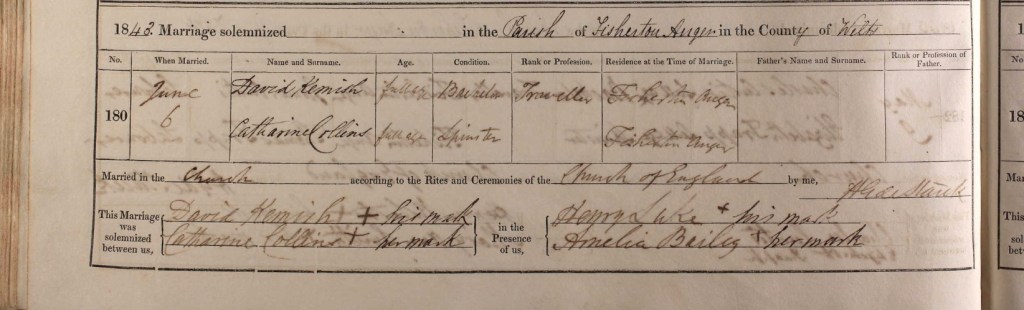 1843. Marriage solemnized in the Parish of Fisherton Anger in the County of Wilts
No. When Married. Name and Surname. Age. Condition. Rank or Profession. Residence at the Time of Marriage. Father's Name and Surname. Rank or Profession of Father.
180 June 6 David Kemish full age Bachelor Traveller Fisherton Anger
Catharine Collins full age Spinster Fisherton Anger
Married in the Church according to the Rites and Ceremonies of the Church of England by me,
This Marriage was solemnized between us, David Kemish + his mark
Catharine Collins + her mark
in the Presence of us, Henry Luke + his mark
Amelia Bailey + her mark